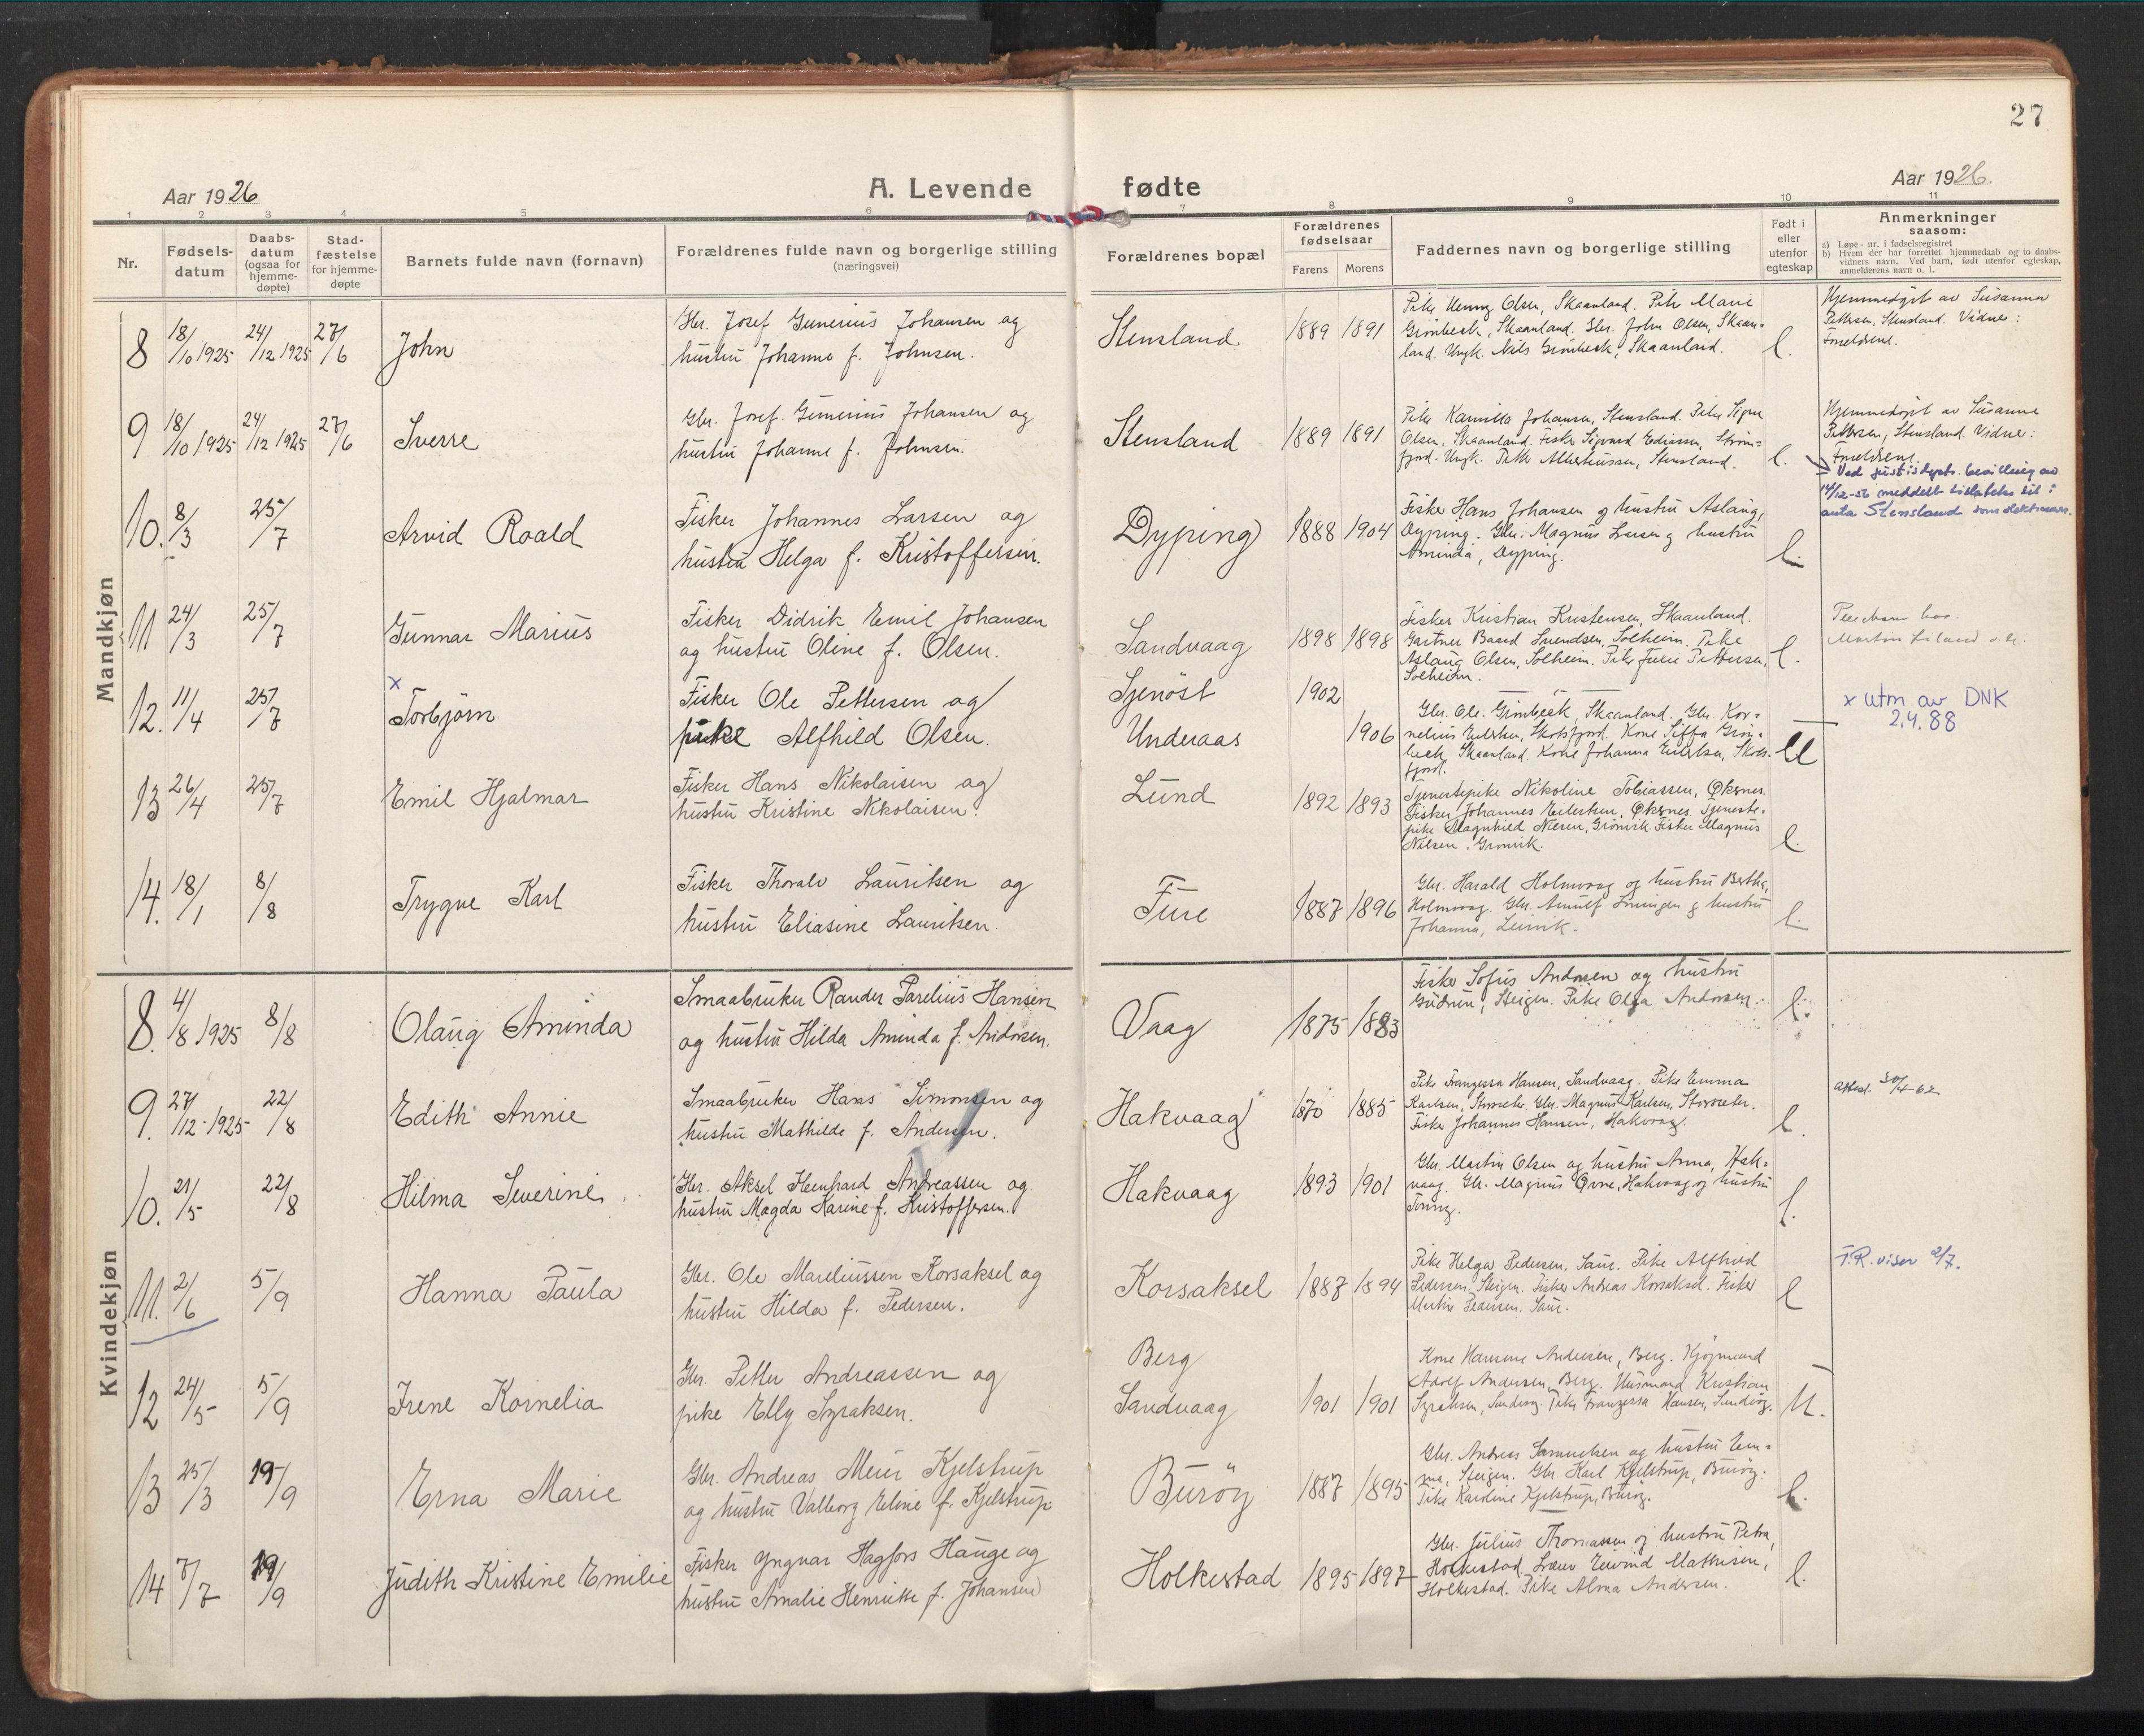 27
Aar 1926
A. Levende fødte
Aar 1926.
1 2 3 4 5 6 7 8 9 10 11
Nr.
Fødsels-
datum
Daabs-
datum
(ogsaa for
hjemme-
døpte)
Stad-
fæstelse
for hjemme-
døpte
Barnets fulde navn (fornavn)
Forældrenes fulde navn og borgerlige stilling
(næringsvei)
Forældrenes bopæl
Forældrenes
fødselsaar
Farens Morens
Faddernes navn og borgerlige stilling
Født i
eller
utenfor
egteskap
Anmerkninger
saasom:
a) Løpe-nr. i fødselsregistret
b) Hvem der har forrettet hjemmedaab og to daabs-
vidners navn. Ved barn, født utenfor egteskap,
anmelderens navn o. l.
Mandkjøn
8 18/10 1925 24/12 1925 27/6 John
Gbr. Josef Gunerius Johansen og
hustru Johanne f. Johnsen.
Stensland 1889 1891
Pike Henny Olsen, Skaanland. Pike Marie
Grönbeck, Skaanland. Gbr. John Olsen, Skaan=
land. Ungk. Nils Grönbeck, Skaanland.
l.
Hjemmedöpt av Susanna
Pettersen, Stensland. Vidner:
Foreldrene.
9 18/10 1925 24/12 1925 27/6 Sverre
Gbr. Josef Gunerius Johansen og
hustru Johanne f. Johnsen.
Stensland 1889 1891
Pike Kamilla Johansen, Stensland. Pike Signe
Olsen, Skaanland. Fisker Sigvard Edvissen, Ström=
fjord. Ungk. Petter Albertiussen, Stensland.
l.
Hjemmedöpt av Susanna
Pettersen, Stensland. Vidner:
Foreldrene.
Ved justisdepts. bevilling av
14/12-56 meddelt tillatelse til å
anta Stensland som slektsnavn.
10. 8/3 25/7 Arvid Roald
Fisker Johannes Larsen og
hustru Helga f. Kristoffersen.
Dyping 1888 1904
Fisker Hans Johansen og hustru Aslaug,
Dyping. Gbr. Magnus Larsen og hustru
Aminda, Dyping.
l.
11 24/3 25/7 Gunnar Marius
Fisker Didrik Emil Johansen
og hustru Oline f. Olsen.
Sandvaag 1898 1898
Fisker Kristian Kristensen, Skaanland.
Gartner Baard Svendsen, Solheim. Pike
Aslaug Olsen, Solheim. Pike Julie Pettersen,
Solheim.
l.
Pleiebarn hos
Martin
12. 11/4 25/7 x Torbjörn
Fisker Ole Pettersen og
pike Alfhild Olsen.
Sjenöst 1902
Underaas 1906
Gbr. Ole Grönbeck, Skaanland. Gbr. Kor=
nelius Eilertsen, Skotsfjord. Kone Siffa Grön=
beck, Skaanland. Kone Johanna Eilertsen, Skots=
fjord.
U
x utm av DNK
2.4.88
13 26/4 25/7 Emil Hjalmar
Fisker Hans Nikolaisen og
hustru Kristine Nikolaisen.
Lund 1892 1893
Tjenestepike Nikoline Tobiassen, Øksnes.
Fisker Johannes Eilertsen, Øksnes. Tjeneste=
pike Magnhild Nilsen, Grönvik. Fisker Magnus
Nilsen, Grönvik.
l.
14. 18/1 8/8 Trygve Karl
Fisker Thoralv Lauritsen og
hustru Eliasine Lauritsen.
Fure 1887 1896
Gbr. Harald Holmvaag og hustru Bertha,
Holmvaag. Gbr. Arnulf Finingen og hustru
Johanna, Leirvik.
l.
Kvindekjøn
8. 4/8 1925 8/8 Olaug Aminda
Smaabruker Rander Parelius Hansen
og hustru Hilda Aminda f. Andorsen.
Vaag 1875 1883
Fisker Sofus Andorsen og hustru
Gudrun, Steigen. Pike Olga Andorsen.
l.
9. 27/12-1925 22/8 Edith Annie
Smaabruker Hans Simonsen og
hustru Mathilde f. Andersen.
Hakvaag 1870 1885
Pike Franzessa Hansen, Sandvaag. Pike Emma
Karlsen, Storsæter. Gbr. Magnus Karlsen, Storsæter.
Fisker Johannes Hansen, Hakvaag.
l.
attest. 30/4-62
10. 21/5 22/8 Hilma Severine
Gbr. Aksel Kornhard Andreassen og
hustru Magda Karine f. Kristoffersen.
Hakvaag 1893 1901
Gbr. Martin Olsen og hustru Anna, Hak=
vaag. Gbr. Magnus Qvæe, Hakvaag og hustru
Jenny.
l.
11. 2/6 5/9 Hanna Paula
Gbr. Ole Mareliussen Korsaksel og
hustru Hilda f. Pedersen.
Korsaksel 1887 1894
Pike Helga Pedersen, Saur. Pike Alfhild
Pedersen, Steigen. Fisker Andreas Korsaksel. Fisker
Martin Pedersen, Saur.
l
F.R. viser 2/7.
12 24/5 5/9 Irene Kornelia
Gbr. Petter Andreassen og
pike Elly Syraksen.
Berg
Sandvaag 1901 1901
Kone Hansine Andersen, Berg. Kjöpmand
Adolf Andersen, Berg. Husmand Kristian
Syraksen, Sandvaag. Pike Franzessa Hansen, Sandvåg.
U.
13 25/3 19/9 Erna Marie
Gbr. Andreas Meier Kjelstrup
og hustru Valborg Eline f. Kjelstrup
Buröy 1887 1895
Gbr. Andreas Samuelsen og hustru Em=
ma, Steigen. Gbr. Karl Kjelstrup, Buröy.
Pike Karoline Kjelstrup, Buröy.
l.
14 7/7 19/9 Judith Kristine Emilie
Fisker Yngvar Hagfors Hauge og
hustru Amalie Henriette f. Johansen
Holkestad 1895 1897
Gbr. Julius Thomassen og hustru Petra,
Holkestad. Lærer Eivind Mathisen,
Holkestad. Pike Alma Andersen.
l.